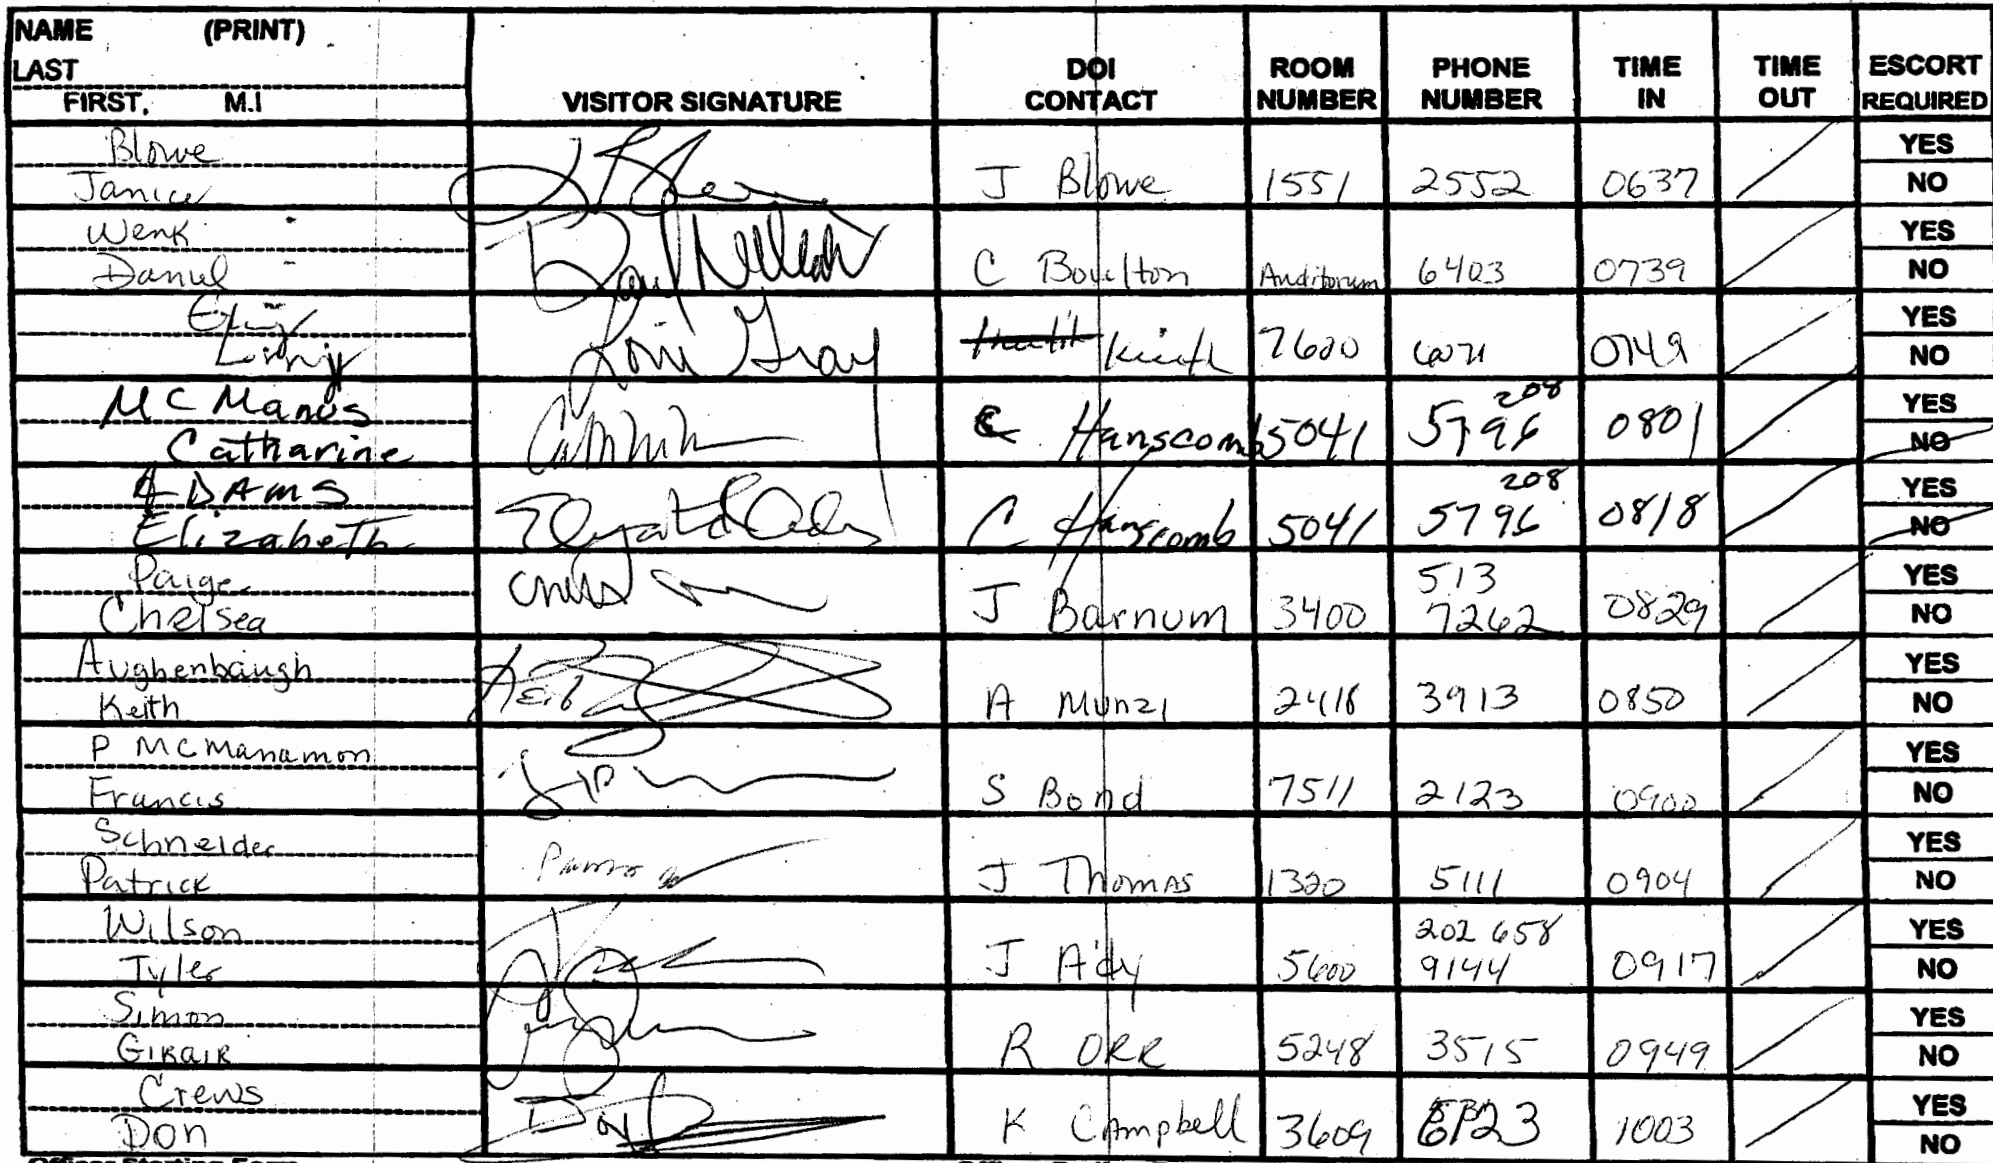 NAME (PRINT)
LAST
FIRST, M.I
VISITOR SIGNATURE
DOI CONTACT
ROOM NUMBER
PHONE NUMBER
TIME IN
TIME OUT
ESCORT REQUIRED
Blowe
Janice
J Blowe 1551 2552 0637
YES
NO
Wenk
Daniel
C Boulton Auditorium 6403 0739
YES
NO
Lori Gray
Keith 7600 0749
YES
NO
McManus
Catharine
C Hanscomb 5041 208 5796 0801
YES
NO
ADAMS
Elizabeth
C Hanscomb 5041 208 5796 0818
YES
NO
Paige
Chelsea
J Barnum 3400 513 7262 0829
YES
NO
Aughenbaugh
Keith
A Munzi 2418 3913 0850
YES
NO
P McManamon
Francis
S Bond 7511 2123 0900
YES
NO
Schneider
Patrick
J Thomas 1320 5111 0904
YES
NO
Wilson
Tyler
J Ady 5600 202 658 9144 0917
YES
NO
Simon
Girair
R ORR 5248 3515 0949
YES
NO
Crews
Don
K Campbell 3609 1003
YES
NO